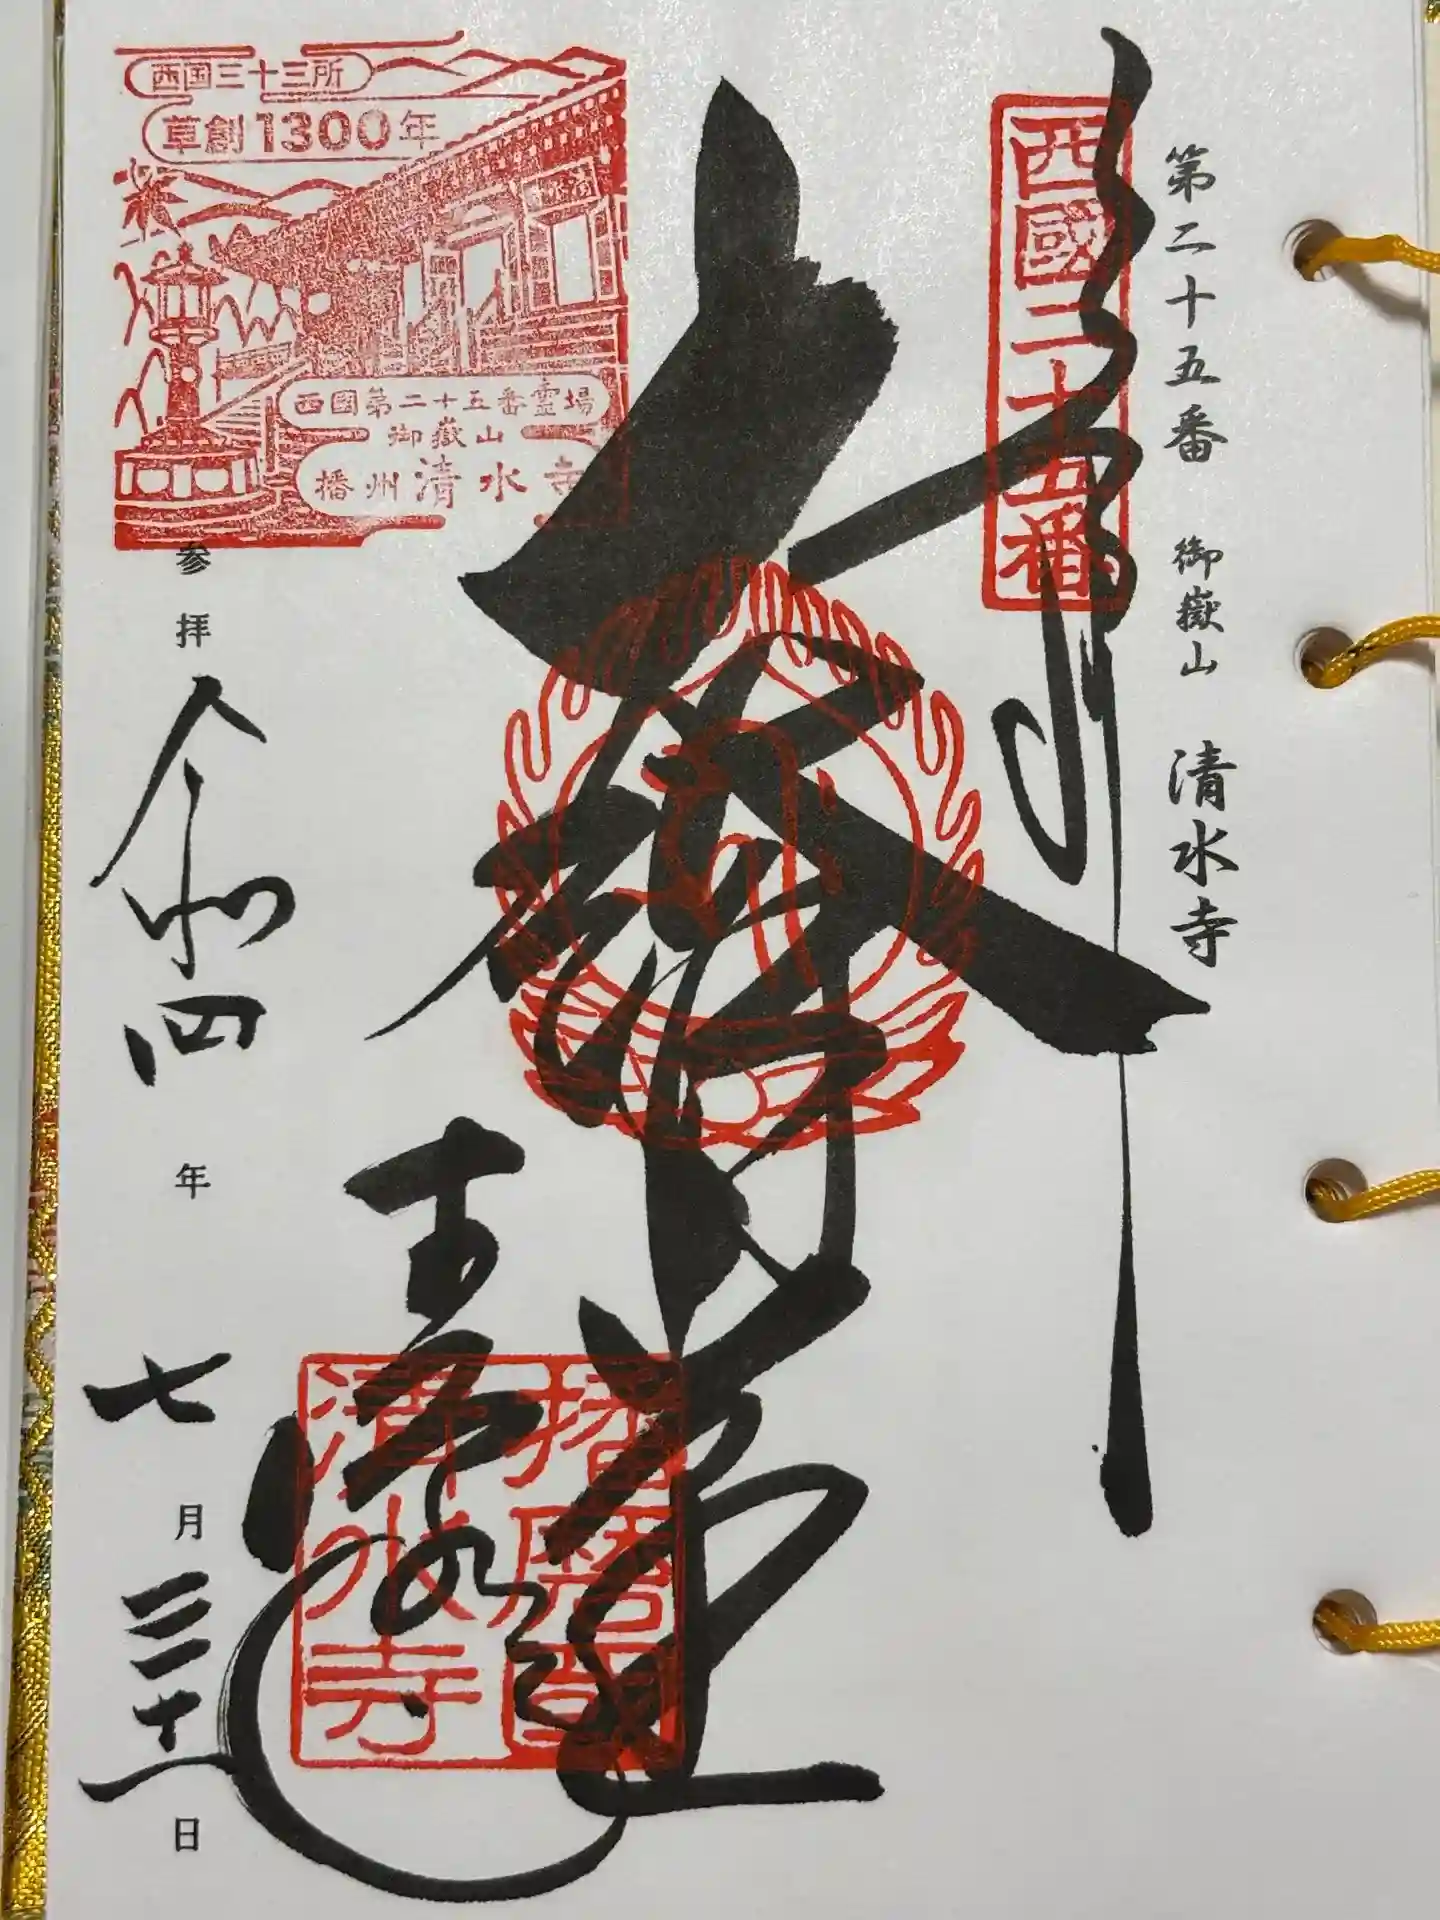 第二十五番 御嶽山 清水寺
西國二十五番
奉拝
大悲殿
清水寺
播磨國
清水寺
西国三十三所
草創1300年
西國第二十五番霊場
御嶽山
播州清水寺
参拝 令和四年 七月三十一日